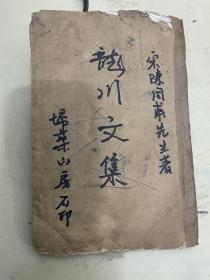 宋陳同甫先生著
龍川文集
埽葉山房石印